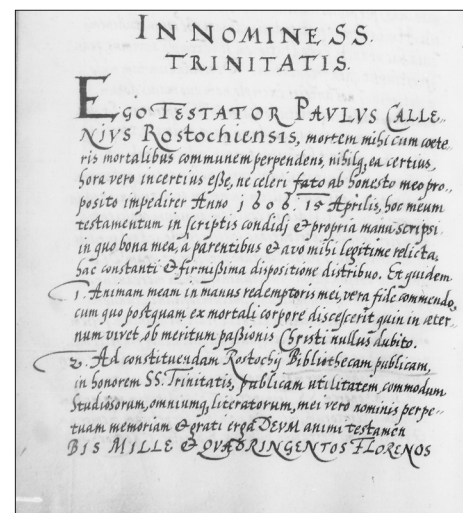 IN NOMINE SS.
TRINITATIS.
EGO TESTATOR PAVLVS CALLE-
NIVS ROSTOCHIENSIS, mortem mihi cum cæte-
ris mortalibus communem perpendens, nihilq; ea certius,
hora vero incertius eße, ne celeri fato ab honesto meo pro-
posito impedirer Anno 1606. 15 Aprilis, hoc meum
testamentum in scriptis condidj & propria manu scripsi
in quo bona mea, a parentibus & avo mihi legitime relicta,
hac constanti & firmißima dispositione distribuo. Et quidem
1. Animam meam in manus redemptoris mei, vera fide commendo,
cum quo postquam ex mortali corpore discescerit quin in æter-
num vivet, ob meritum paßionis Christi nullus dubito.
2. Ad constituendam Rostochij Bibliothecam publicam,
in honorem SS. Trinitatis, publicam utilitatem commodum
Studiosorum, omniumq; literatorum, mei vero nominis perpe-
tuam memoriam & grati ergà DEVM animi testamen
BIS MILLE & QVADRINGENTOS FLORENOS